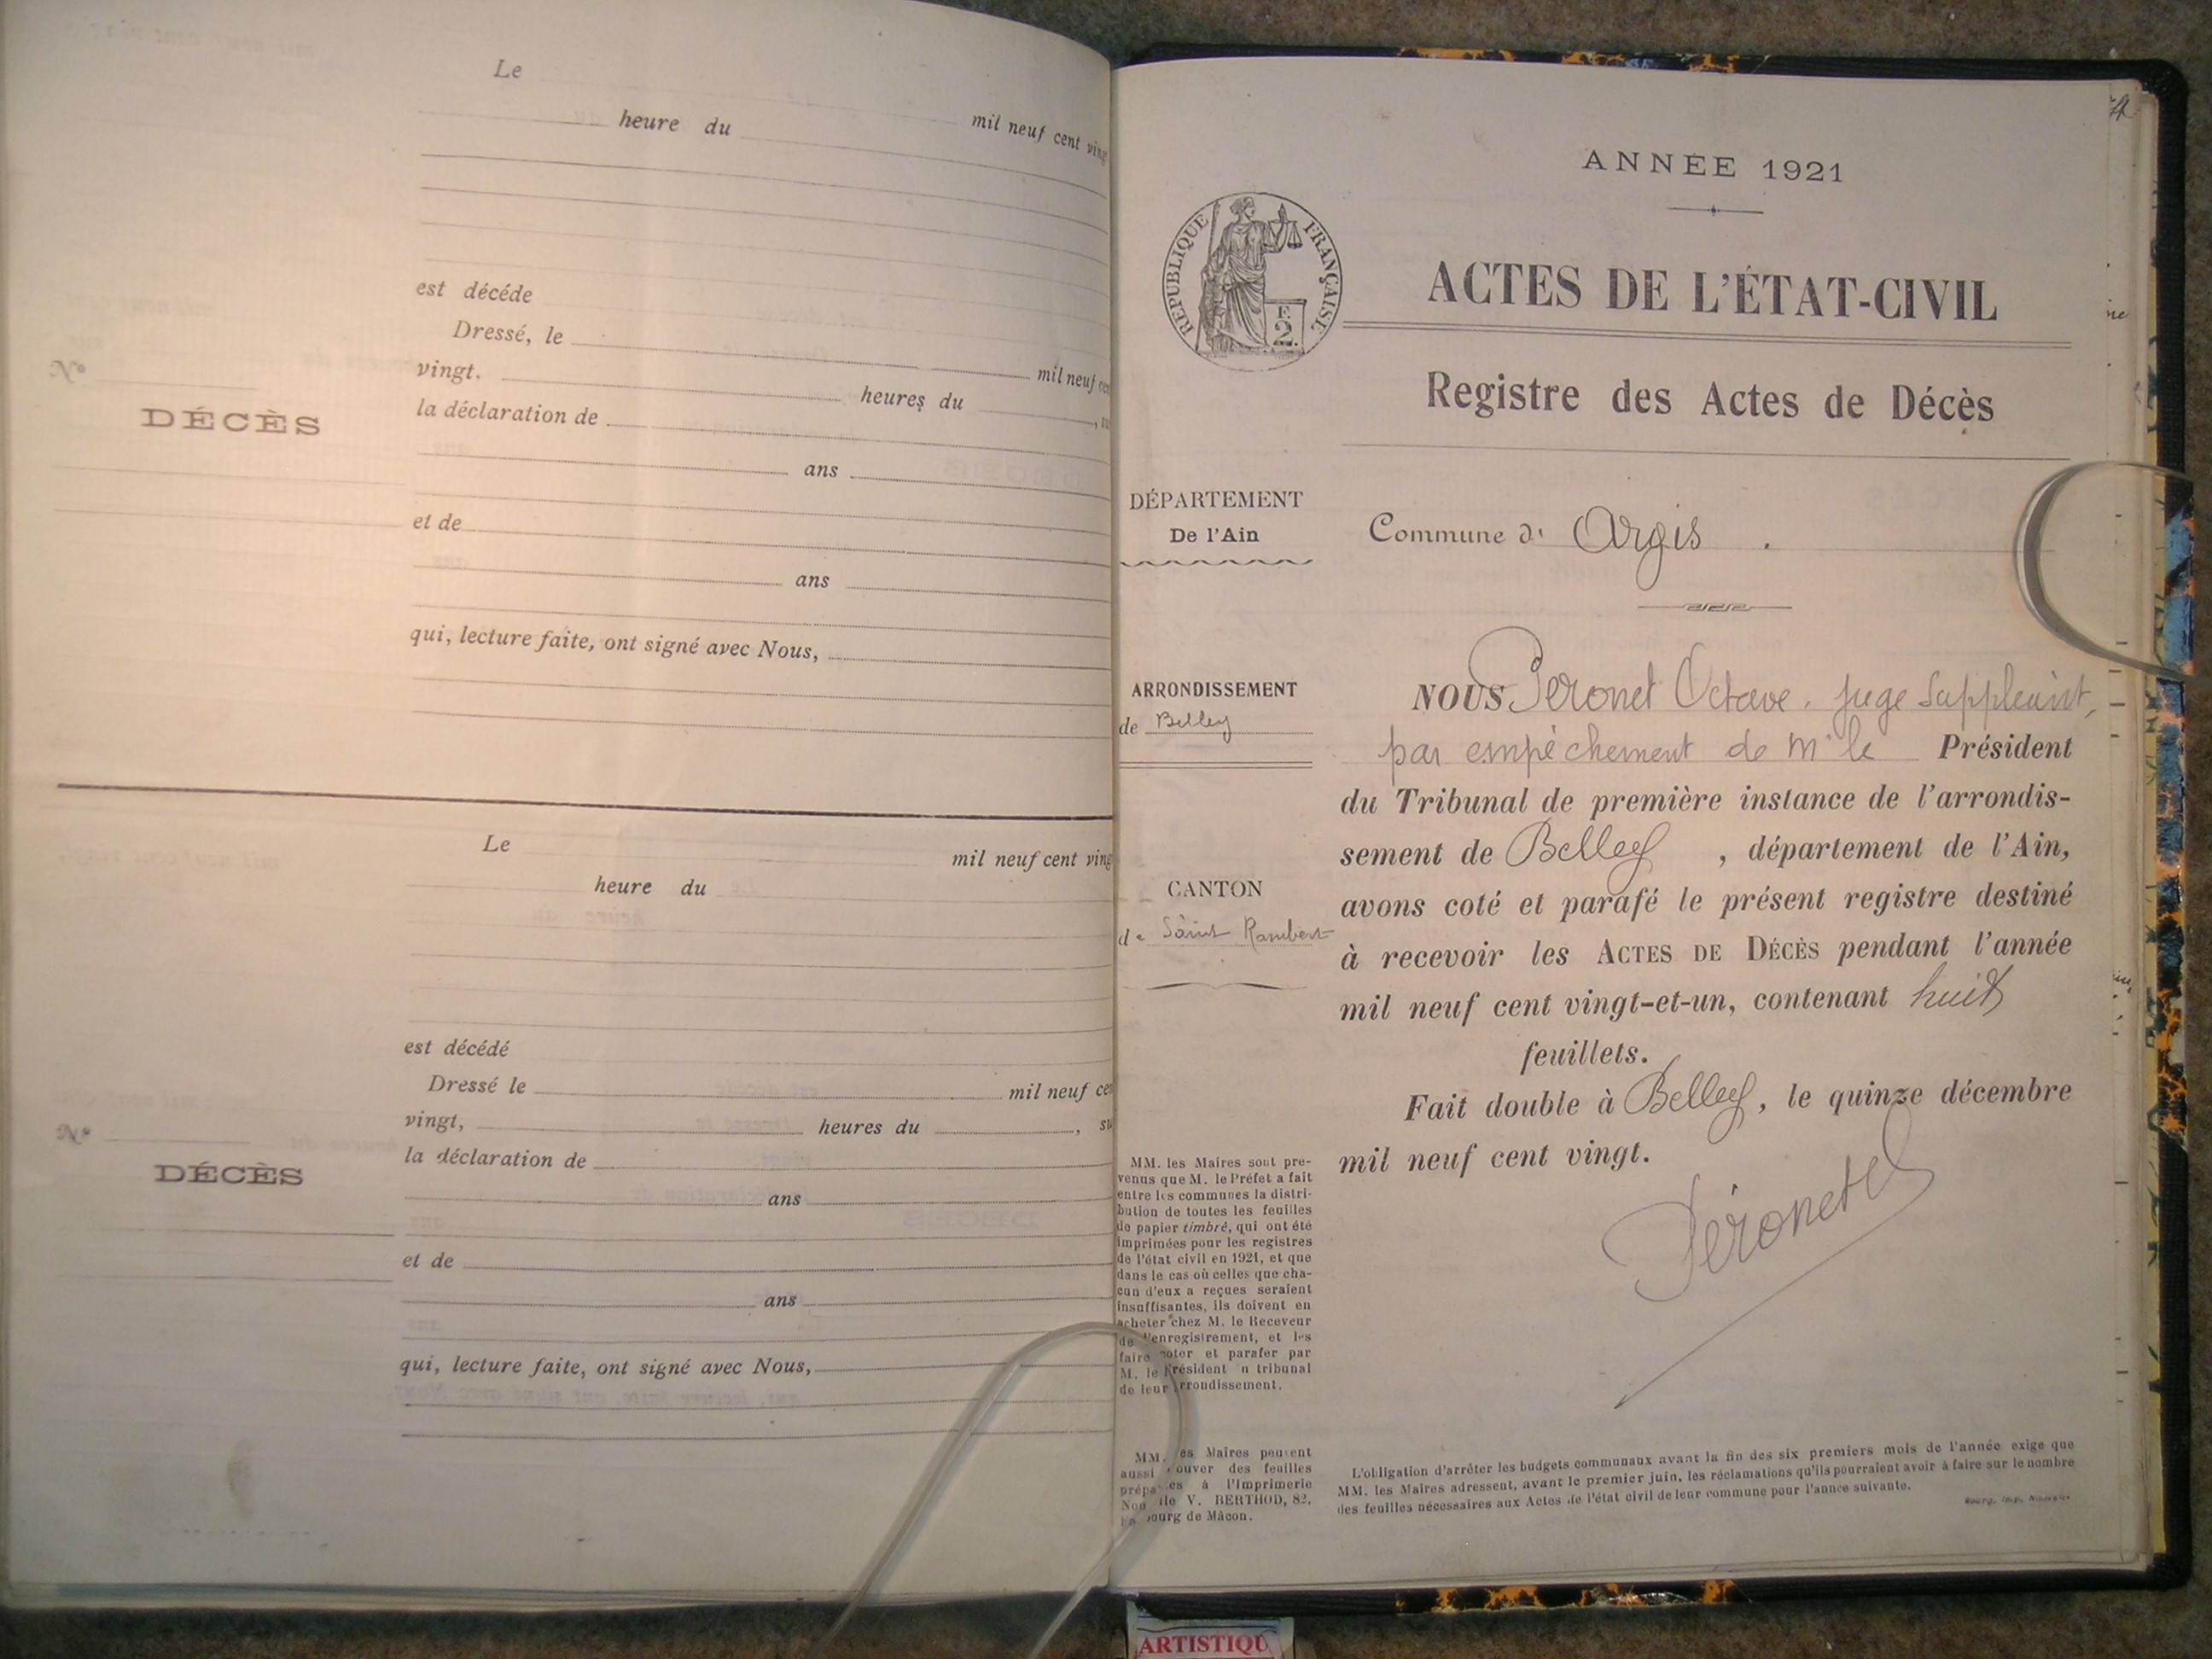 Le
heure du mil neuf cent ving
est décéde
Dressé, le mil neuf cen
vingt. heures du
la déclaration de
N°
DÉCÈS
ans
et de
ans
qui, lecture faite, ont signé avec Nous,
Le mil neuf cent ving
heure du
est décédé
Dressé le mil neuf ce
vingt, heures du , su
la déclaration de
N°
DÉCÈS
ans
et de
ans
qui, lecture faite, ont signé avec Nous,
ANNÉE 1921
RÉPUBLIQUE FRANÇAISE
F.
2.
ACTES DE L'ÉTAT-CIVIL
Registre des Actes de Décès
DÉPARTEMENT
De l'Ain
Commune d' Argis .
ARRONDISSEMENT
de Belley
CANTON
de Saint Rambert
NOUS Peronet Octave, juge suppleant,
par empêchement de Mr le Président
du Tribunal de première instance de l'arrondis-
sement de Belley , département de l'Ain,
avons coté et parafé le présent registre destiné
à recevoir les ACTES DE DÉCÈS pendant l'année
mil neuf cent vingt-et-un, contenant huit
feuillets.
Fait double à Belley, le quinze décembre
mil neuf cent vingt.
Péronet
MM. les Maires sont pré-
venus que M. le Préfet a fait
entre les communes la distri-
bution de toutes les feuilles
de papier timbré, qui ont été
imprimées pour les registres
de l'état civil en 1921, et que
dans le cas où celles que cha-
cun d'eux a reçues seraient
insuffisantes, ils doivent en
acheter chez M. le Receveur
de l'enregistrement, et les
faire coter et parafer par
M. le Président u tribunal
de leur arrondissement.
MM. es Maires peuvent
aussi ouver des feuilles
prépa es à l'Imprimerie
Nou lle V. BERTHOD, 82,
ourg de Mâcon.
L'obligation d'arrêter les budgets communaux avant la fin des six premiers mois de l'année exige que
MM. les Maires adressent, avant le premier juin, les réclamations qu'ils pourraient avoir à faire sur le nombre
des feuilles nécessaires aux Actes de l'état civil de leur commune pour l'année suivante.
Bourg, Imp. Nouvelle
ARTISTIQU